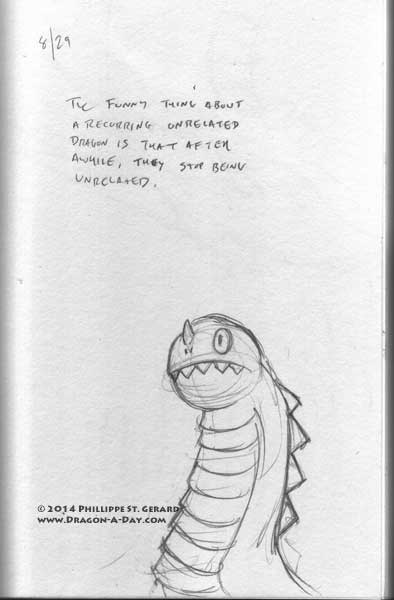 8/29
The Funny Thing About
a Recurring Unrelated
Dragon is that after
awhile, they stop being
unrelated.
© 2014 Phillippe St. Gerard
www.Dragon-A-Day.com